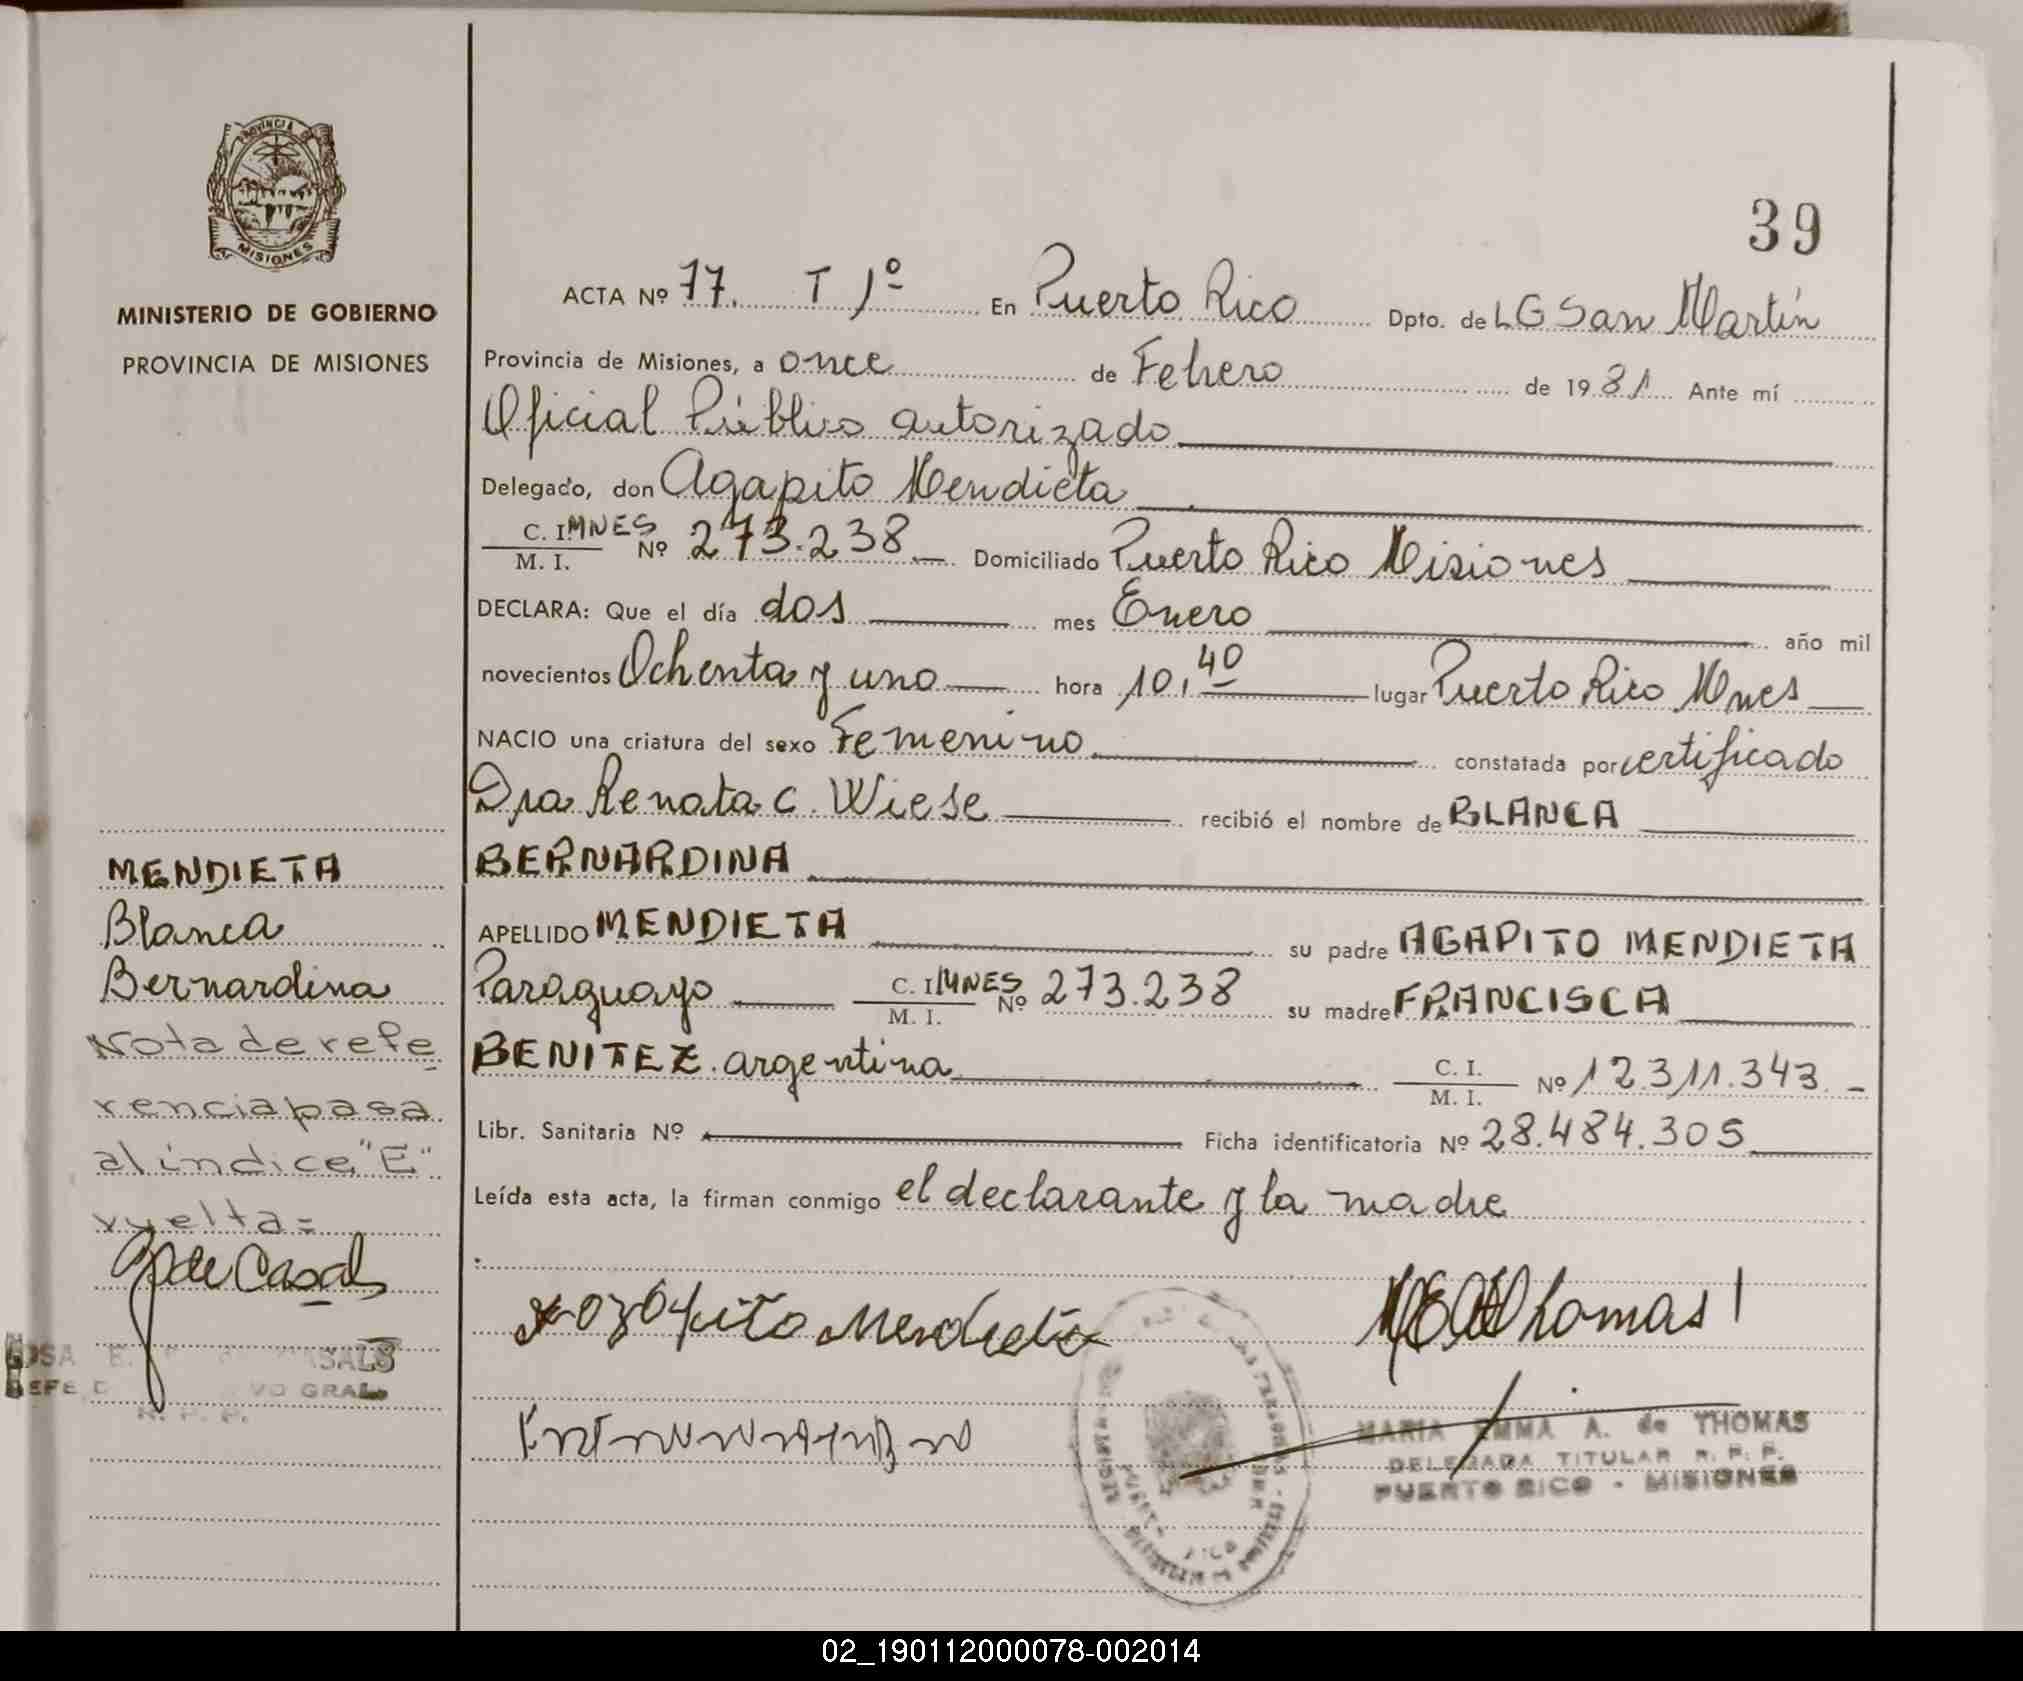 PROVINCIA DE
MISIONES
MINISTERIO DE GOBIERNO
PROVINCIA DE MISIONES
39
ACTA Nº 77. T 1º En Puerto Rico Dpto. de LG San Martín
Provincia de Misiones, a once de Febrero de 1981 Ante mí
Oficial Público autorizado
Delegado, don Agapito Mendieta
C. I. MNES
M. I. Nº 273.238 Domiciliado Puerto Rico Misiones
DECLARA: Que el día dos mes Enero año mil
novecientos Ochenta y uno hora 10,40 lugar Puerto Rico Mnes
NACIO una criatura del sexo Femenino constatada por certificado
Dra Renata C. Wiese recibió el nombre de BLANCA
BERNARDINA
APELLIDO MENDIETA su padre AGAPITO MENDIETA
Paraguayo C. I. MNES M. I. Nº 273.238 su madre FRANCISCA
BENITEZ. argentina C. I. M. I. Nº 12.311.343.-
Libr. Sanitaria Nº Ficha identificatoria Nº 28.484.305
Leída esta acta, la firman conmigo el declarante y la madre
MENDIETA
Blanca
Bernardina
Nota de refe
rencia pasa
al índice "E"
vuelta=
de Casals
CASALS
GRAL.
R. P. P.
Mendieta
Thomas
MARIA EMMA A. de THOMAS
DELEGADA TITULAR R. P. P.
PUERTO RICO - MISIONES
02_190112000078-002014